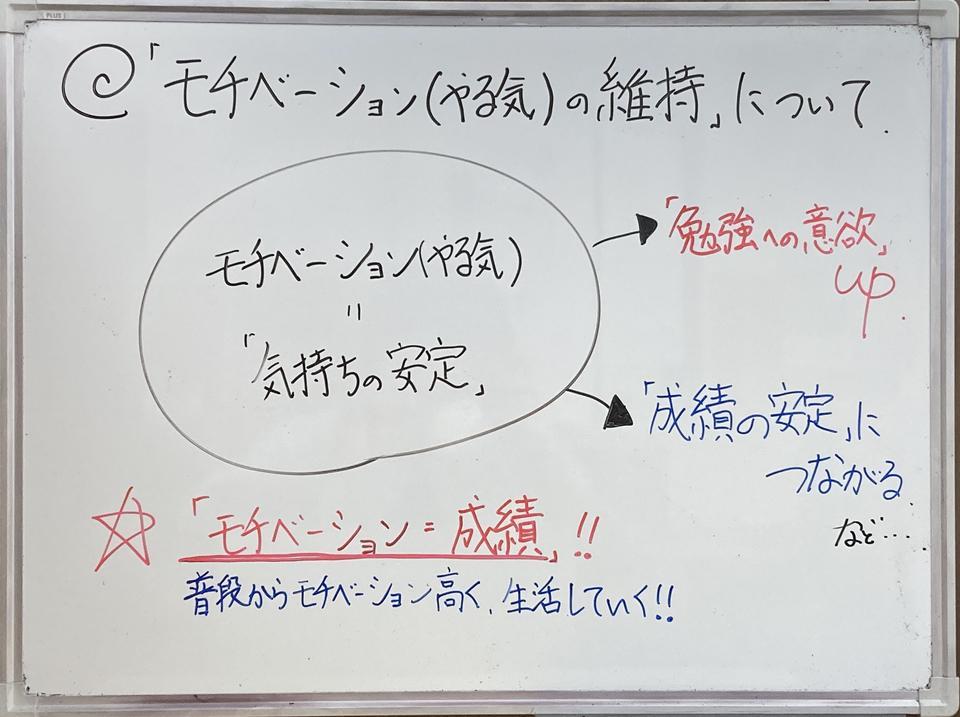 「モチベーション(やる気)の維持」について.
モチベーション(やる気)
=
「気持ちの安定」
「勉強への意欲」
up.
「成績の安定」に
つながる.
など…
「モチベーション=成績」!!
普段からモチベーション高く、生活していく!!
PLUS